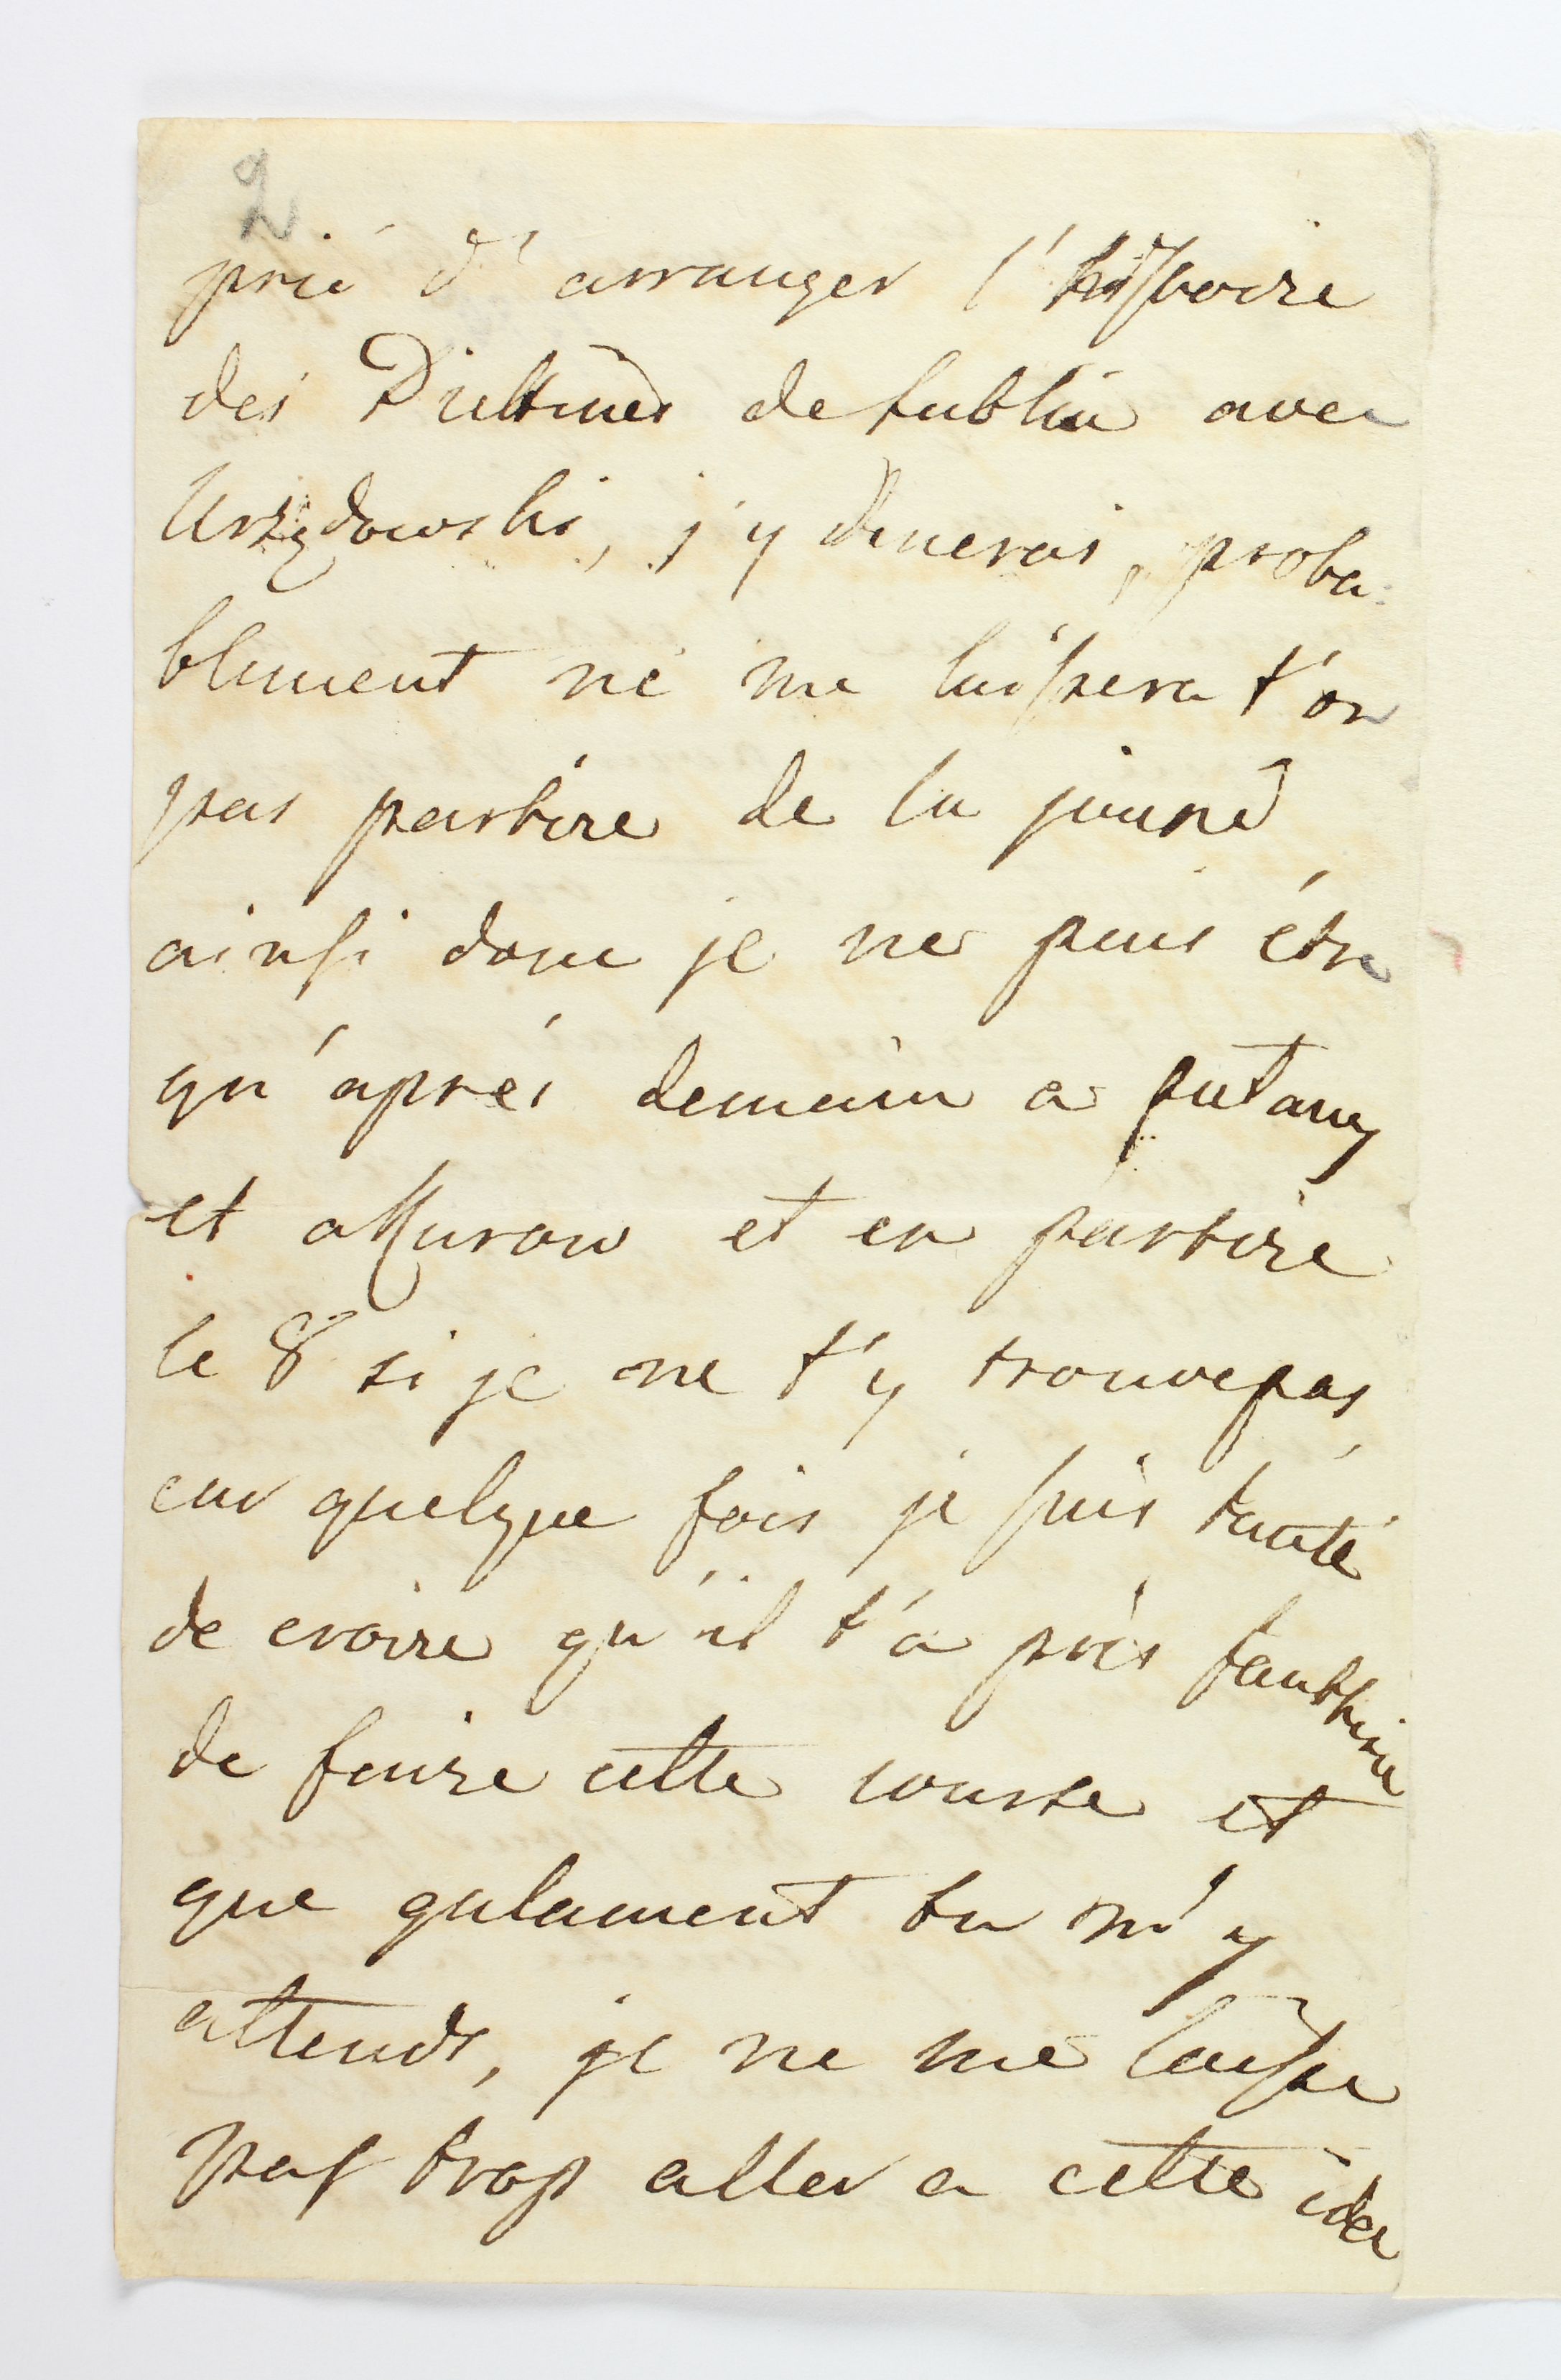 2
prié d'arranger l'histoire
des de Lublin avec
Urzędowski, j'y dinerai, proba-
blement ne me laissera t'on
pas partire de la journé
ainsi donc je ne puis étre
qu'aprés demain a
et a Kurow et en partire
le 8 si je ne t'y trouve pas,
car quelque fois je suis tanté
de croire qu'il t'a pris fanthisie
de faire cette course et
que galament tu m'y
attends, je ne me laisse
pas trop aller a cette idea